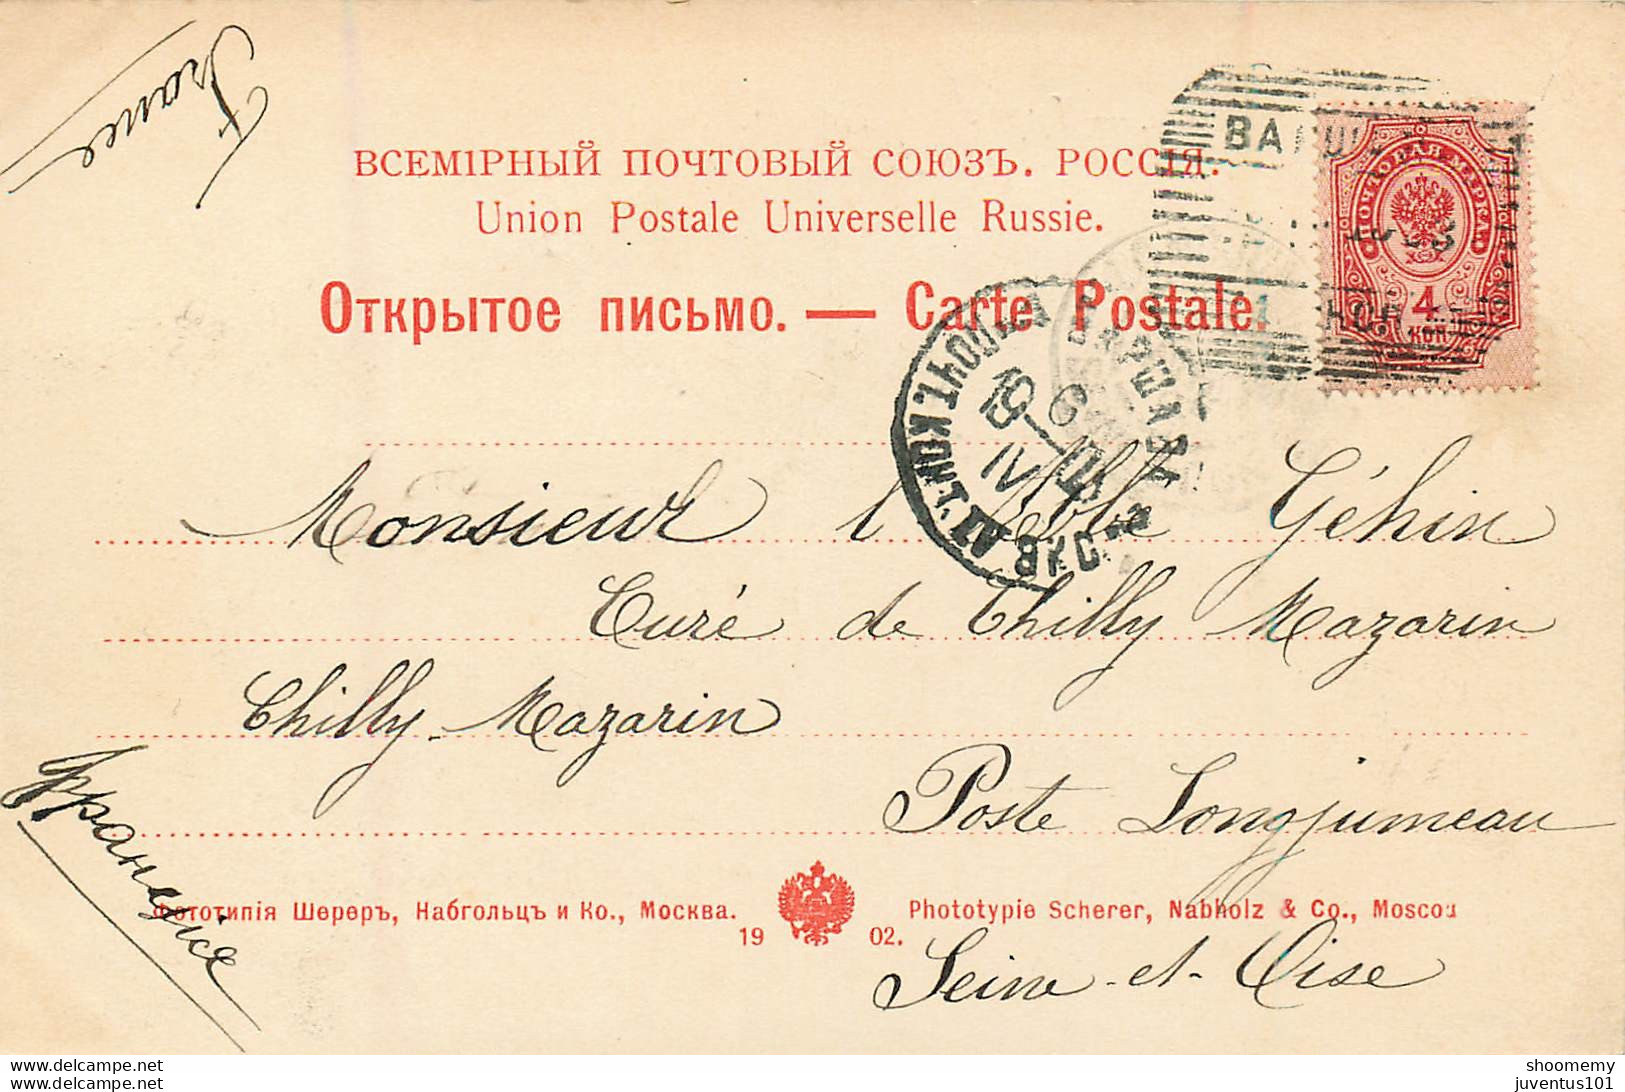 France
ВСЕМІРНЫЙ ПОЧТОВЫЙ СОЮЗЪ. РОССІЯ.
Union Postale Universelle Russie.
Открытое письмо. — Carte Postale.
ПОЧТОВАЯ МАРКА
4
КОП
ВАРШАВА
ПОЧТ. КОНТ.
19 IV
Monsieur l'Abbé Géhin
Curé de Chilly Mazarin
Chilly-Mazarin
Poste Longjumeau
Франція
Фототипія Шереръ, Набгольцъ и Ко., Москва.
Phototypie Scherer, Nabholz & Co., Moscou
19 02.
Seine-et-Oise
shoomemy
juventus101